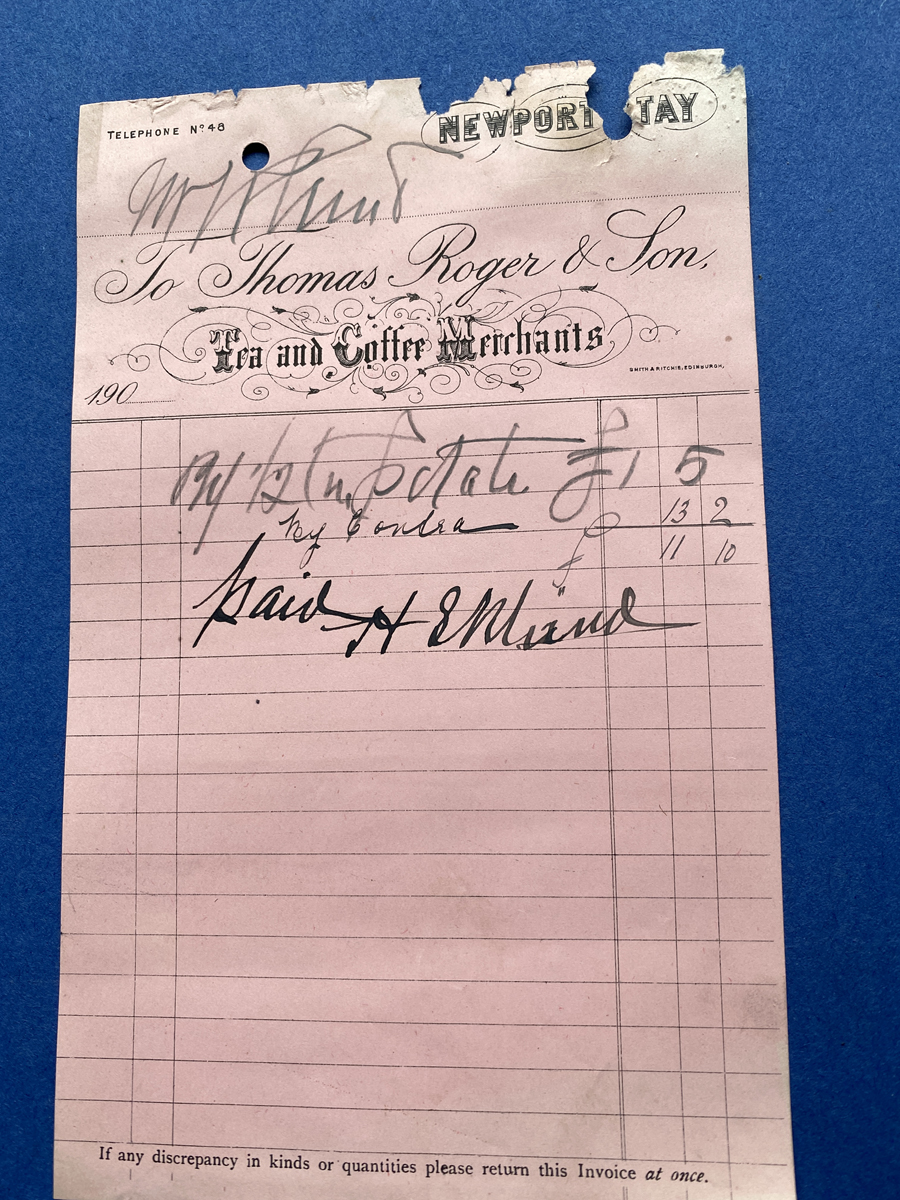 TELEPHONE Nº 48
NEWPORT TAY
Mr
To Thomas Roger & Son,
Tea and Coffee Merchants
SMITH & RITCHIE, EDINBURGH,
190
1/2 £1 5
By Contra 13 2
£ 11 10
Paid H Eklund
If any discrepancy in kinds or quantities please return this Invoice at once.